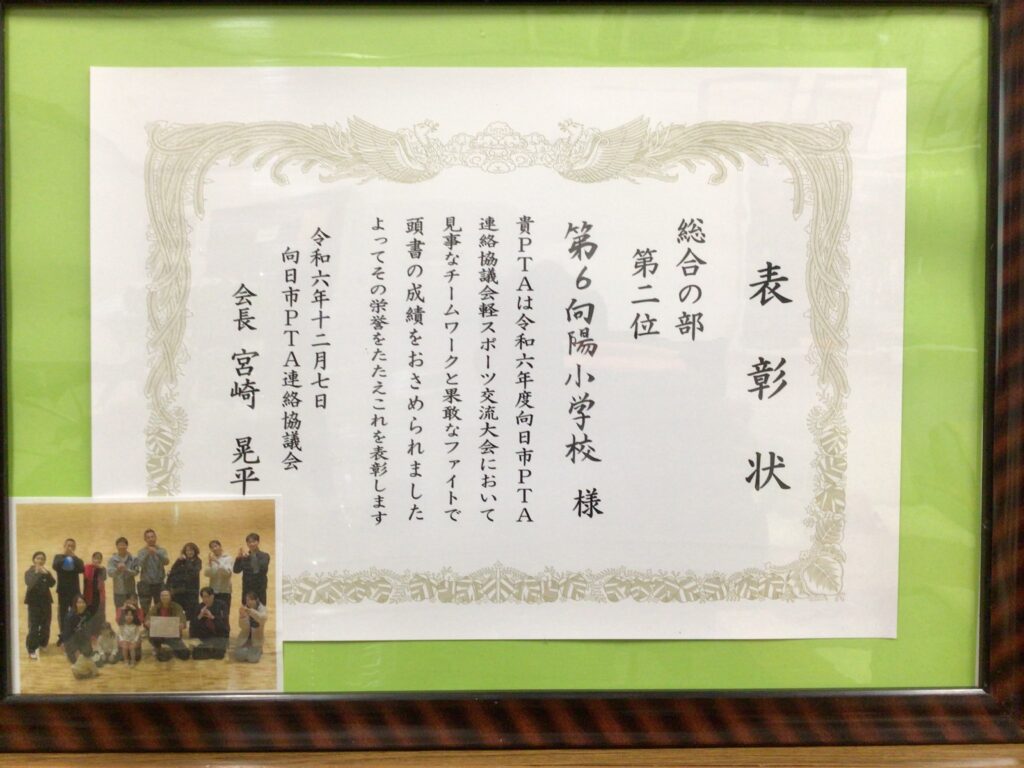 表彰状
総合の部
第二位
第６向陽小学校 様
貴ＰＴＡは令和六年度向日市ＰＴＡ
連絡協議会軽スポーツ交流大会において
見事なチームワークと果敢なファイトで
頭書の成績をおさめられました
よってその栄誉をたたえこれを表彰します
令和六年十二月七日
向日市ＰＴＡ連絡協議会
会長 宮崎 晃平